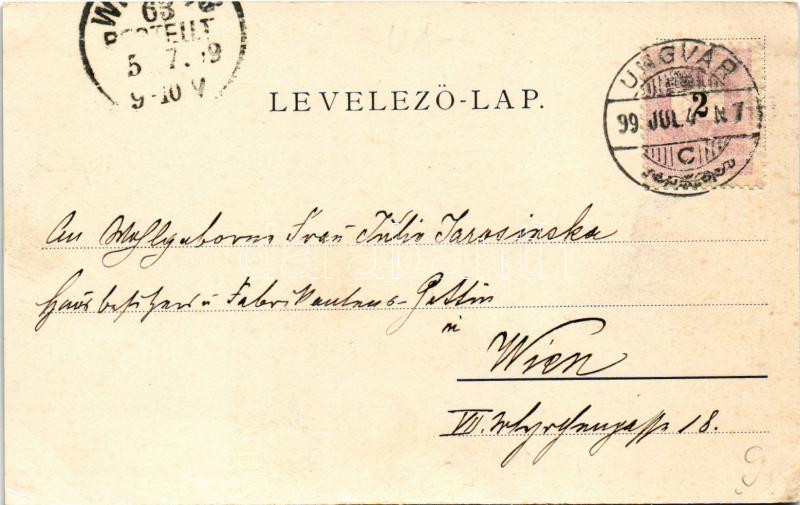 63
BESTELLT
5 7. 99
9-10 V
LEVELEZŐ-LAP.
UNGVÁR
99 JUL 4 N 7
C
2
An Wohlgeborne Frau Julie Jarosinska
Hausbesitzers u Fabrikantens-Gattin
in
Wien
VII. 18.
darabanth